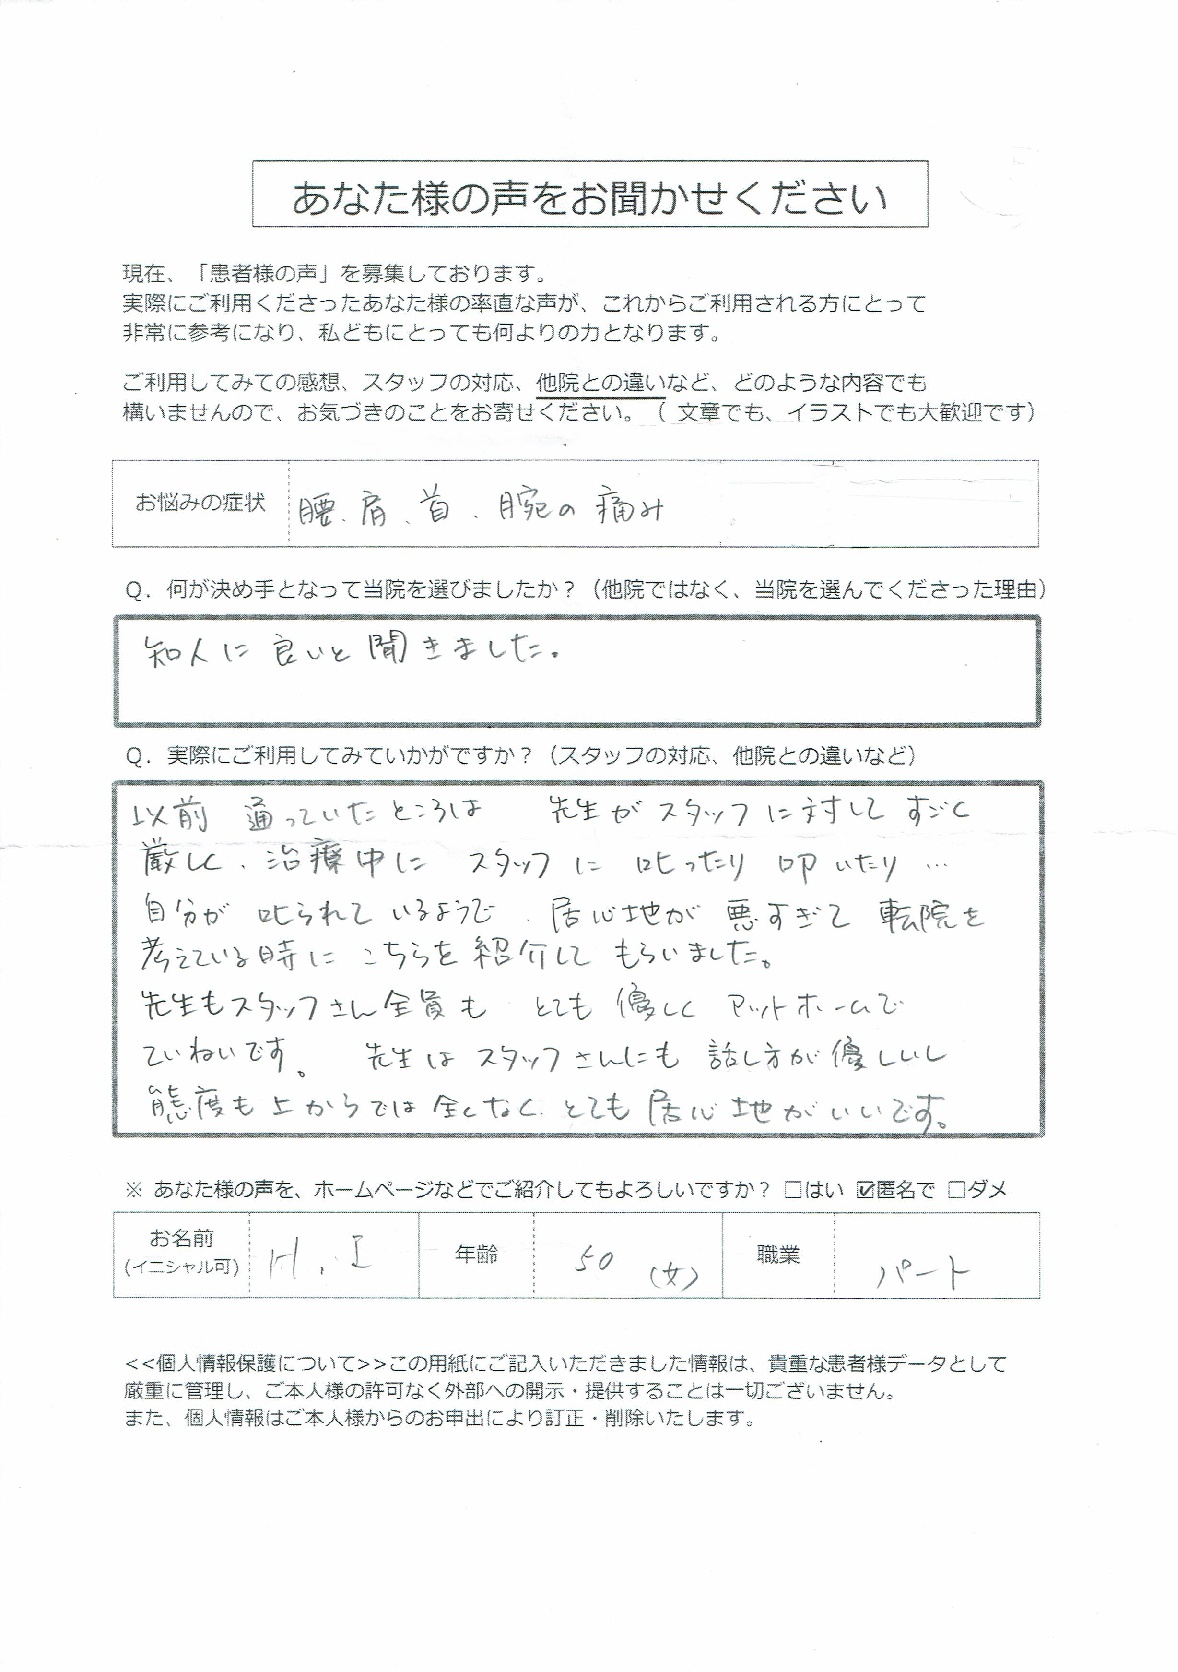 あなた様の声をお聞かせください
現在、「患者様の声」を募集しております。
実際にご利用くださったあなた様の率直な声が、これからご利用される方にとって
非常に参考になり、私どもにとっても何よりの力となります。
ご利用してみての感想、スタッフの対応、他院との違いなど、どのような内容でも
構いませんので、お気づきのことをお寄せください。（ 文章でも、イラストでも大歓迎です）
お悩みの症状 腰、肩、首、腕の痛み
Q．何が決め手となって当院を選びましたか？（他院ではなく、当院を選んでくださった理由）
知人に良いと聞きました。
Q．実際にご利用してみていかがですか？（スタッフの対応、他院との違いなど）
以前 通っていたところは 先生がスタッフに対してすごく
厳しく、治療中に スタッフに 叱ったり 叩いたり…
自分が 叱られているようで、居心地が 悪すぎて 転院を
考えている時に こちらを紹介して もらいました。
先生もスタッフさん全員も とても 優しく アットホームで
ていねいです。 先生はスタッフさんにも 話し方が優しいし
態度も上からでは全くなく、とても 居心地がいいです。
※ あなた様の声を、ホームページなどでご紹介してもよろしいですか？ □はい ☑匿名で □ダメ
お名前 (イニシャル可) H.I 年齢 50 (女) 職業 パート
<<個人情報保護について>>この用紙にご記入いただきました情報は、貴重な患者様データとして
厳重に管理し、ご本人様の許可なく外部への開示・提供することは一切ございません。
また、個人情報はご本人様からのお申出により訂正・削除いたします。